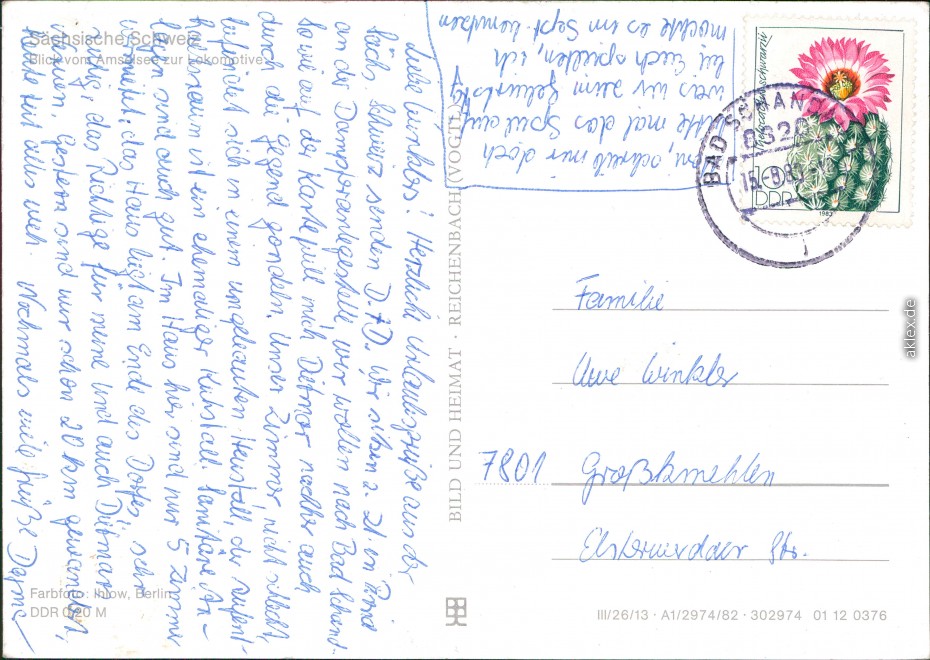 Sächsische Schweiz
Blick vom Amselsee zur Lokomotive
Liebe Winklers! Herzliche Urlaubsgrüße aus der
Sächs. Schweiz senden D. + D. Wir sitzen z. Zt. in Pirna
an der Dampferanlegestelle, wir wollen nach Bad Schand-
Soweit auf der Karte will mich Dietmar nachher auch
durch die Gegend gondeln. Unser Zimmer, nicht schlecht,
befindet sich in einem umgebauten Heustall, der Aufent-
haltsraum ist ein ehemaliger Kuhstall. Sanitäre An-
lagen sind auch gut. Im Haus hier sind nur 5 Zimmer
vermietet, das Haus liegt am Ende des Dorfes, sehr
ruhig, das Richtige für meine und auch Dietmars
Nerven. Gestern sind wir schon 20 km gewandert,
heute tut alles weh. Nochmals viele Grüße Dagmar
schreib mir doch
bitte mal das Spiel auf,
was wir zum Geburtstag
bei Euch spielten, ich
möchte es im Sept. benutzen
BILD UND HEIMAT · REICHENBACH (VOGTL)
BAD SCHANDAU
8320
15.-8.83
10
DDR
1983
Familie
Uwe Winkler
7801 Großkmehlen
Elsterwerdaer Str.
Farbfoto: Ihlow, Berlin
DDR 0,20 M
III/26/13 · A1/2974/82 · 302974 01 12 0376
aklex.de